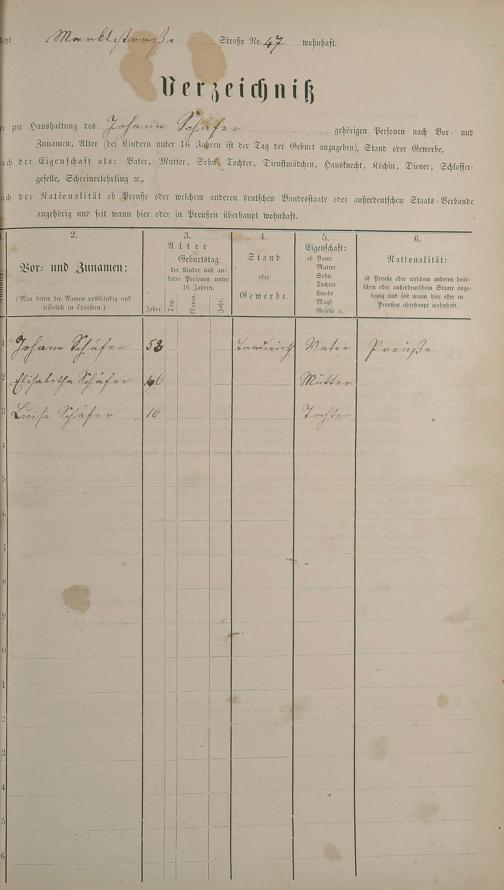 Marktstraße Straße No. 47 wohnhaft.
Verzeichniß
zur Haushaltung des Johann Schäfer gehörigen Personen nach Vor- und
Zunamen, Alter (bei Kindern unter 16 Jahren ist der Tag der Geburt anzugeben), Stand oder Gewerbe,
nach der Eigenschaft als: Vater, Mutter, Sohn, Tochter, Dienstmädchen, Hausknecht, Köchin, Diener, Schlosser-
geselle, Schreinerlehrling ꝛc.,
nach der Nationalität ob Preuße oder welchem anderen deutschen Bundesstaate oder außerdeutschen Staats-Verbande
angehörig und seit wann hier oder in Preußen überhaupt wohnhaft.
2.
Vor- und Zunamen:
(Man bittet die Namen vollständig und
leserlich zu schreiben.)
3.
Alter
Geburtstag
der Kinder und an-
derer Personen unter
16 Jahren.
Jahre
Tag.
Monat.
Jahr.
4.
Stand
oder
Gewerbe.
5.
Eigenschaft:
ob Vater
Mutter
Sohn
Tochter
Knecht
Magd
Geselle ꝛc.
6.
Nationalität:
ob Preuße oder welchem anderen deut-
schen oder außerdeutschen Staate ange-
hörig und seit wann hier oder in
Preußen überhaupt wohnhaft.
1 Johann Schäfer 53 Landwirth Vater Preuße
2 Elisabetha Schäfer 46 Mutter
3 Luise Schäfer 16 Tochter
4
5
6
7
8
9
0
1
2
3
4
5
6